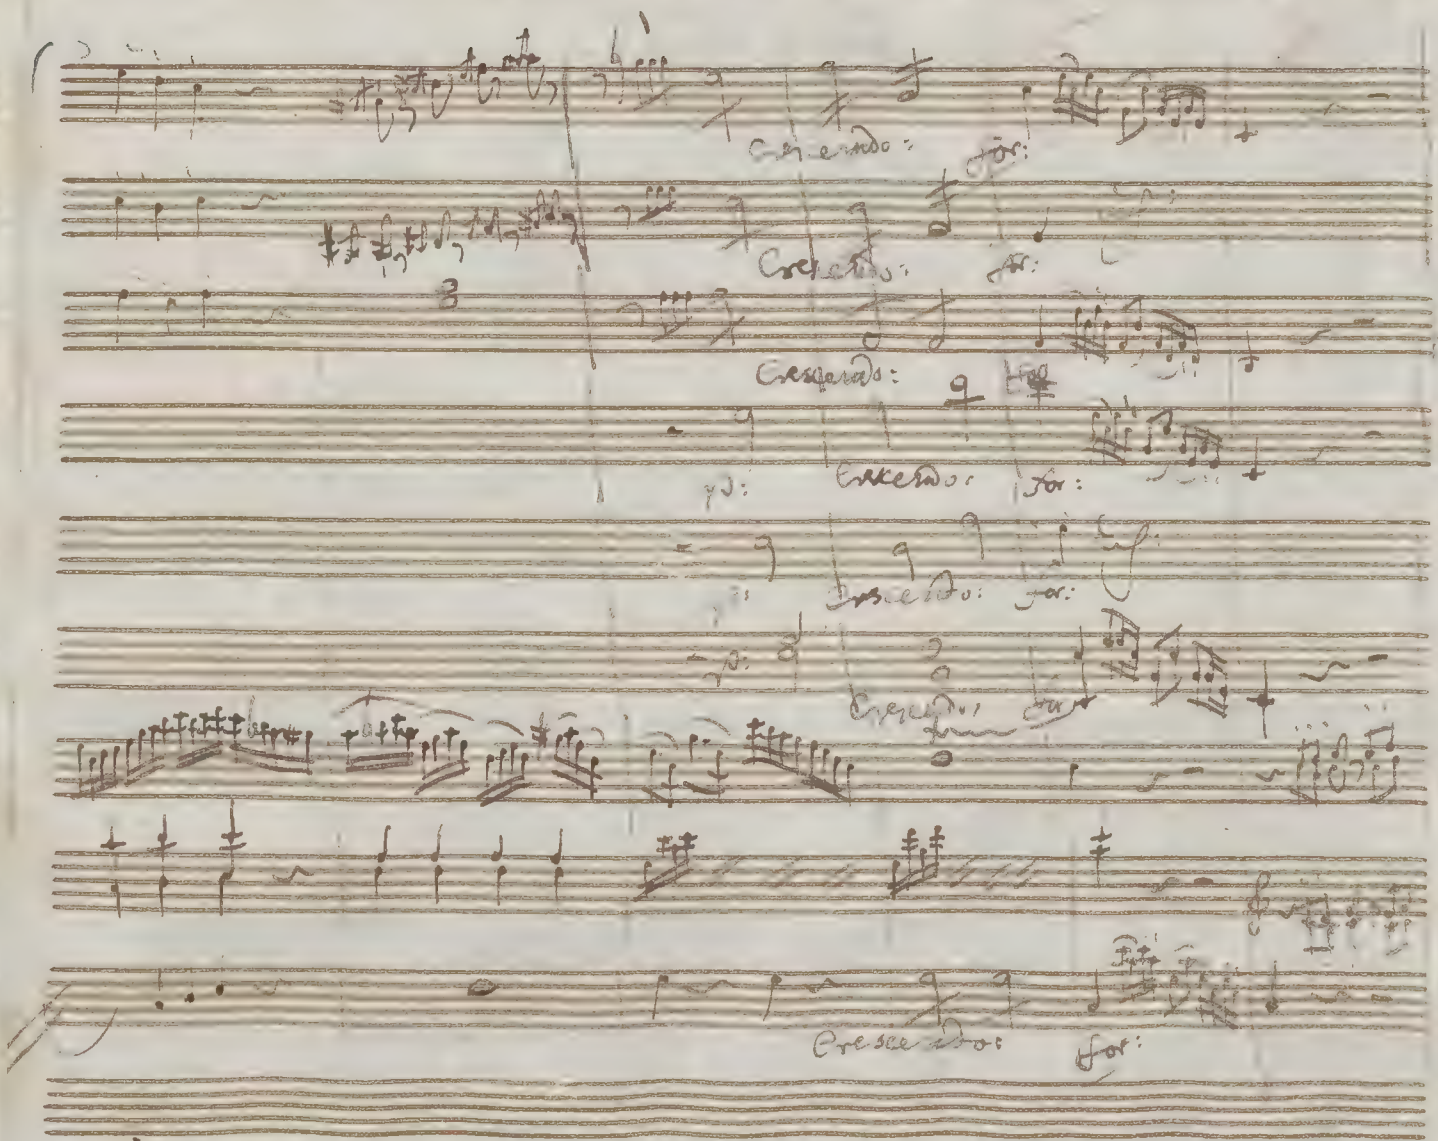 Crescendo: for:
Crescendo: for:
Crescendo:
p: Crescendo: for:
Crescendo: for:
p:
Crescendo: for
Crescendo: for: